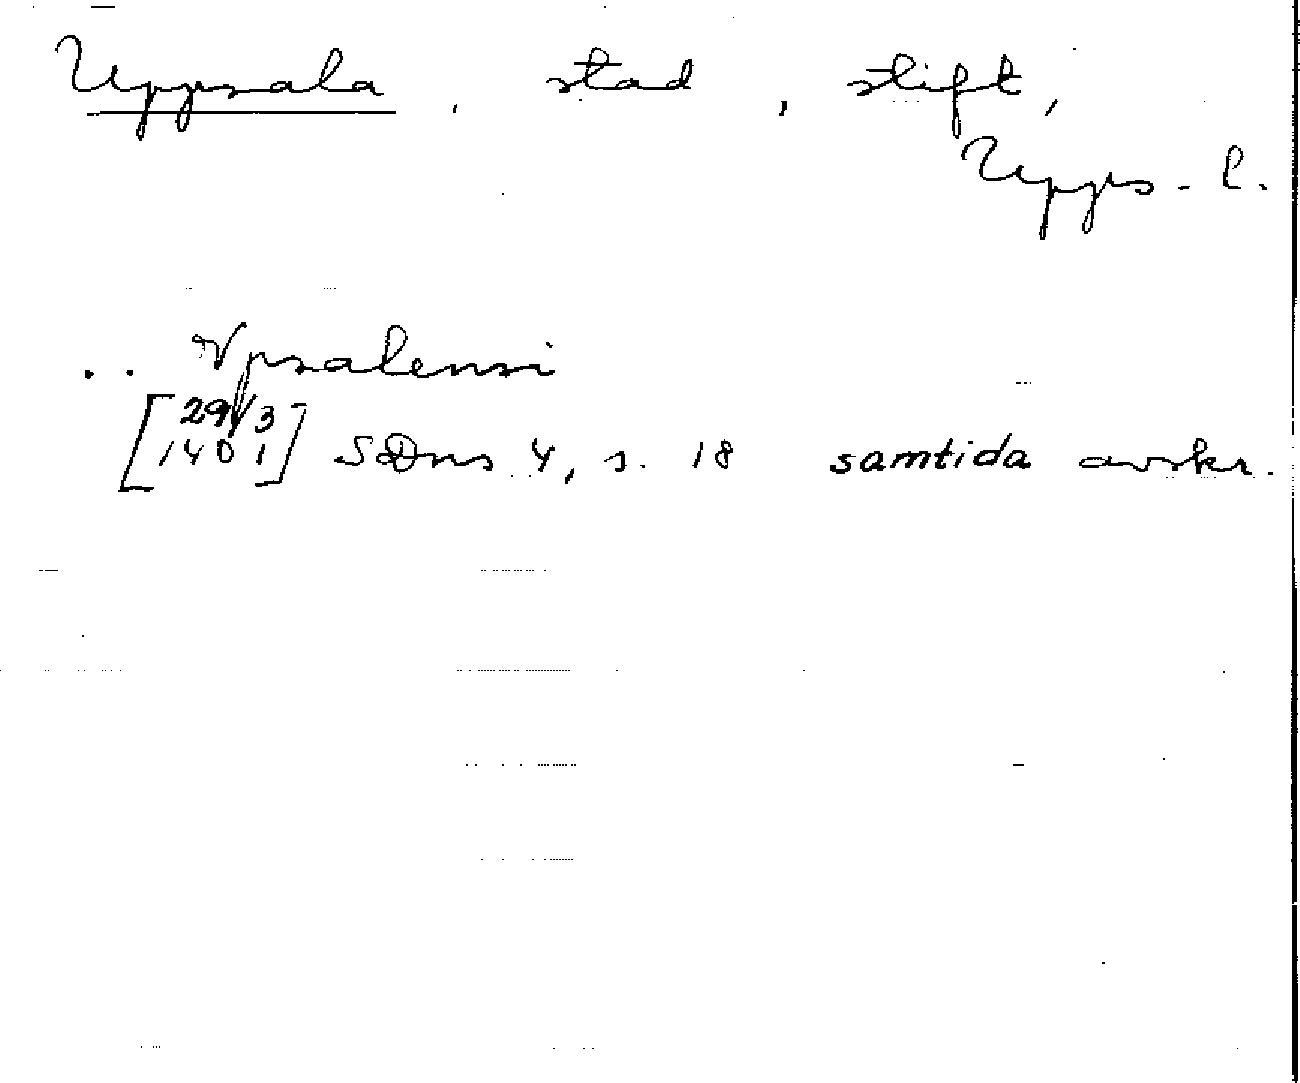 Uppsala, stad, stift,
Upps. l.
.. Vpsalensi
[29/3
1401] SDns 4, s. 18 samtida avskr.